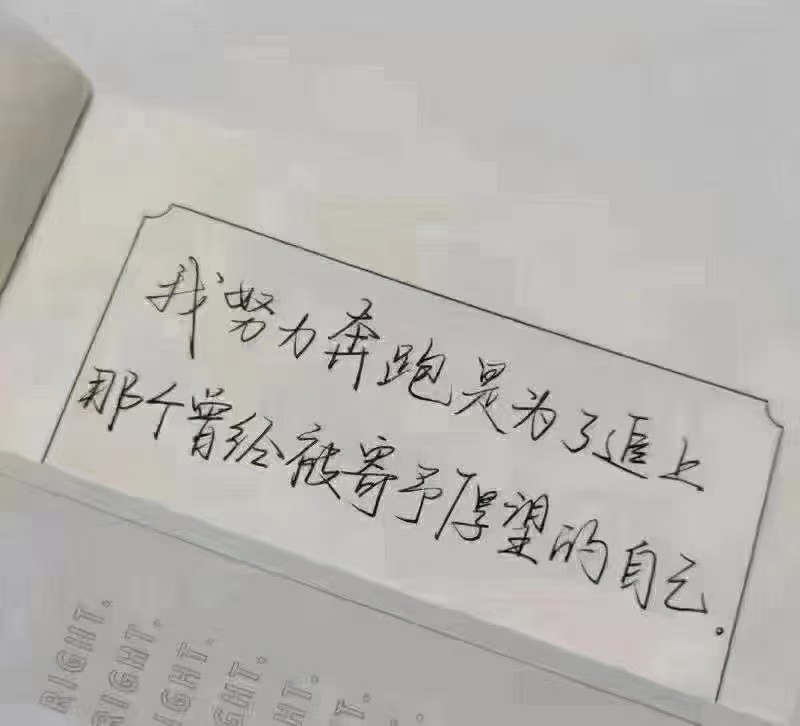 我努力奔跑是为了追上
那个曾经被寄予厚望的自己.
RIGHT.
RIGHT.
IGHT.
GHT.
HT.
T.